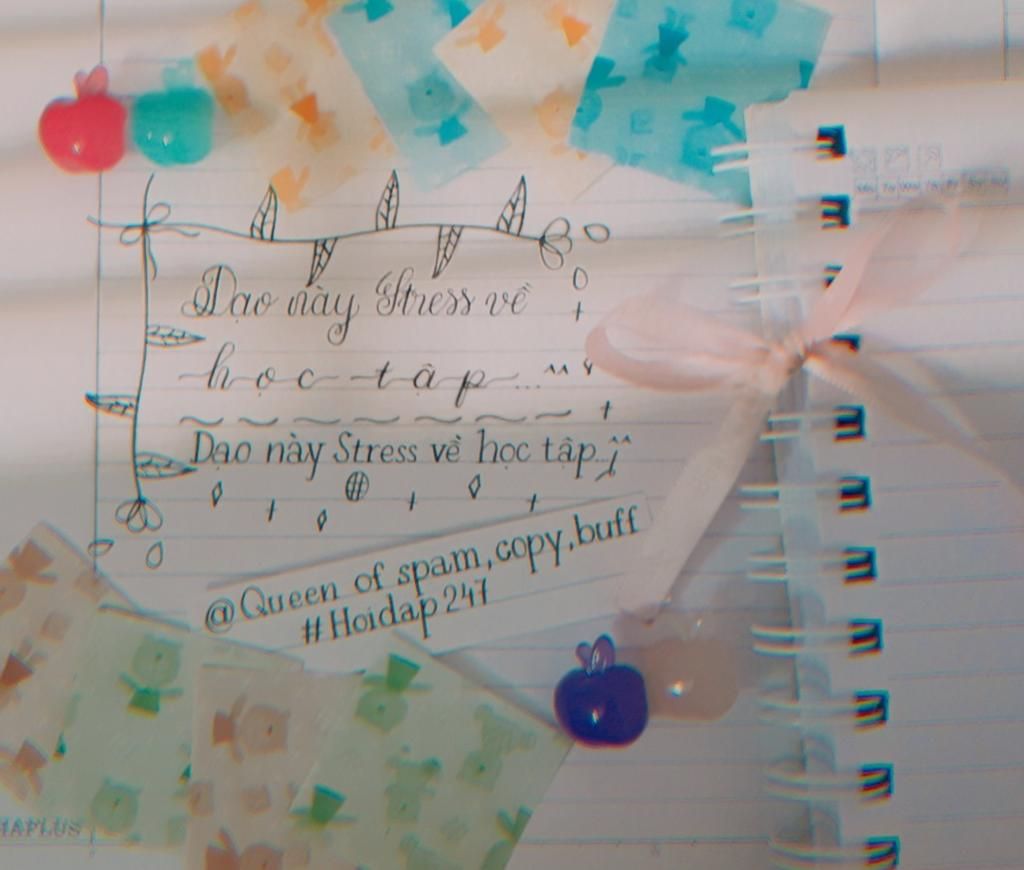 Dạo này Stress về
học tập...^^
Dạo này Stress về học tập..^^
@Queen of spam, copy, buff
#Hoidap247